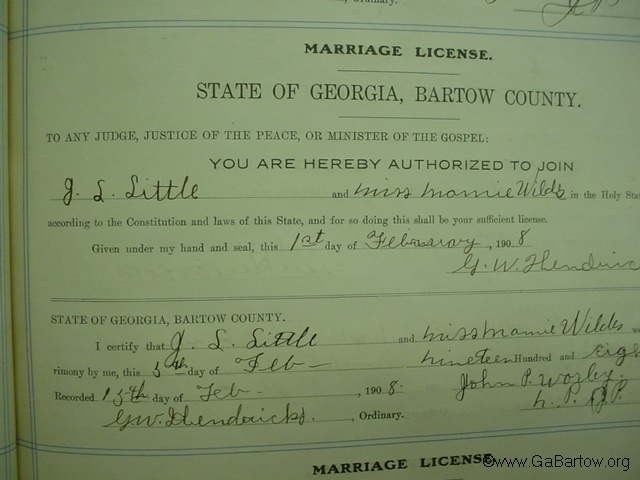 , Ordinary.
MARRIAGE LICENSE.
STATE OF GEORGIA, BARTOW COUNTY.
TO ANY JUDGE, JUSTICE OF THE PEACE, OR MINISTER OF THE GOSPEL:
YOU ARE HEREBY AUTHORIZED TO JOIN
J. L. Little and Miss Mamie Wilds in the Holy Sta
according to the Constitution and laws of this State, and for so doing this shall be your sufficient license.
Given under my hand and seal, this 1st day of February, 1908
G. W. Hendric
STATE OF GEORGIA, BARTOW COUNTY.
I certify that J. L. Little and Miss Mamie Wilds we
rimony by me, this 5th day of Feb nineteen Hundred and Eigh
Recorded 15th day of Feb , 1908. John P. Worley.
G W. Hendricks. , Ordinary. N. P. J.P.
MARRIAGE LICENSE.
©www.GaBartow.org